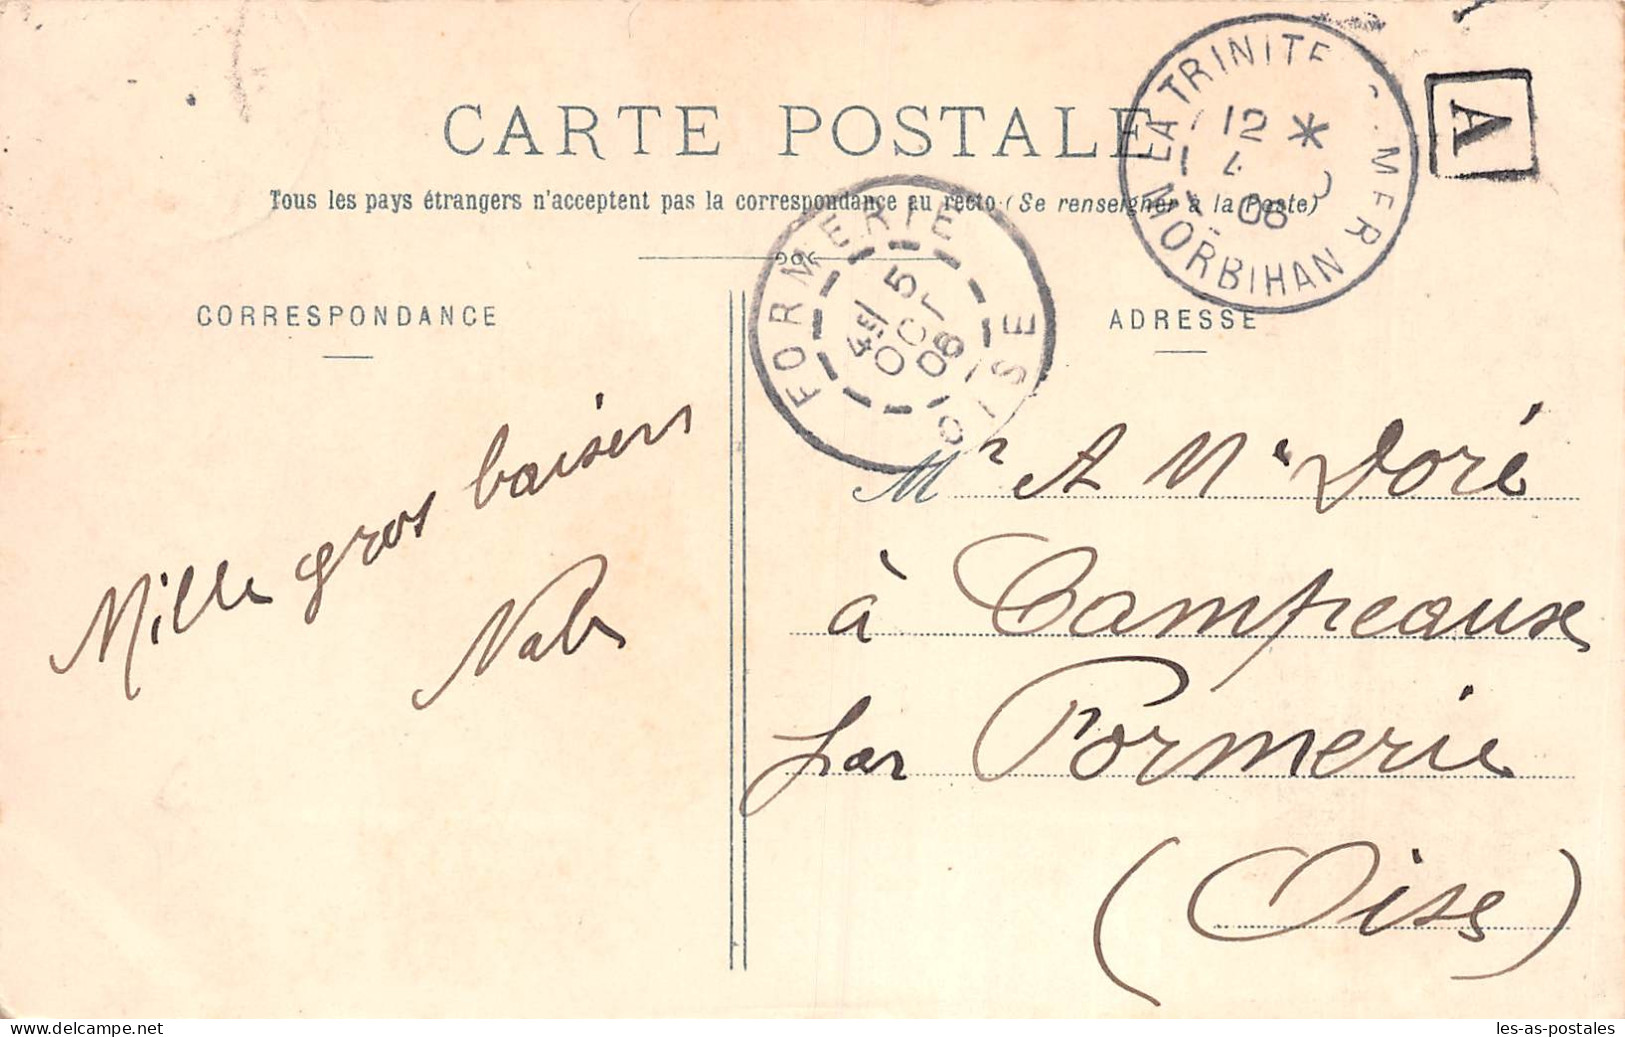 CARTE POSTALE
Tous les pays étrangers n'acceptent pas la correspondance au recto (Se renseigner à la Poste)
LA TRINITE S. MER
12 *
4
06
MORBIHAN
A
FORMERIE
4E 5
OCT
06
OISE
CORRESPONDANCE
ADRESSE
Mille gros baisers
Mr A Doré
à Campeaux
par Formerie
(Oise)
delcampe.net
les-as-postales